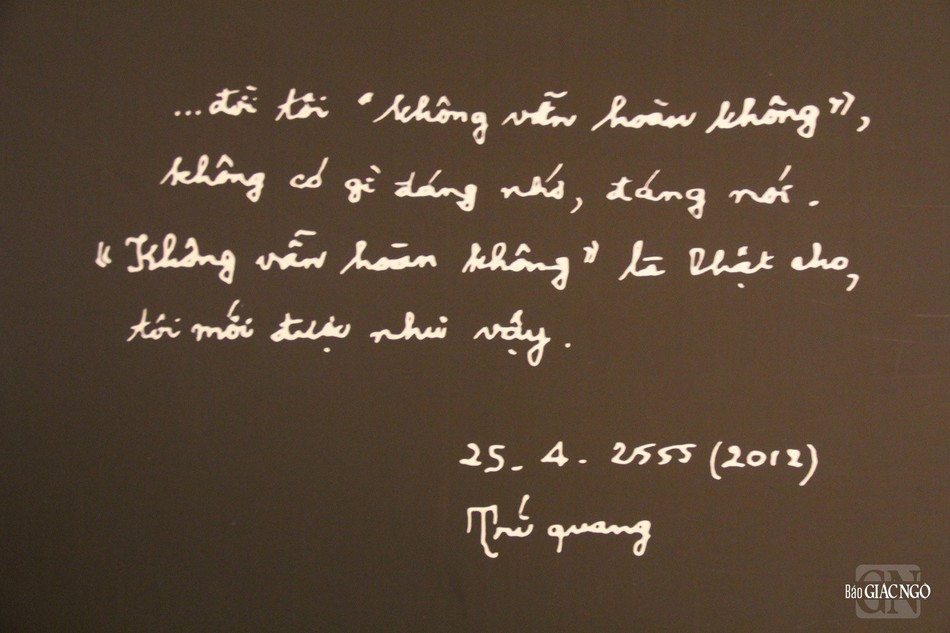 ...đời tôi "không vẫn hoàn không",
không có gì đáng nhớ, đáng nói.
"Không vẫn hoàn không" là Phật cho,
tôi mới được như vậy.
25. 4. 2555 (2012)
Trí quang
Báo GIÁC NGỘ
GN